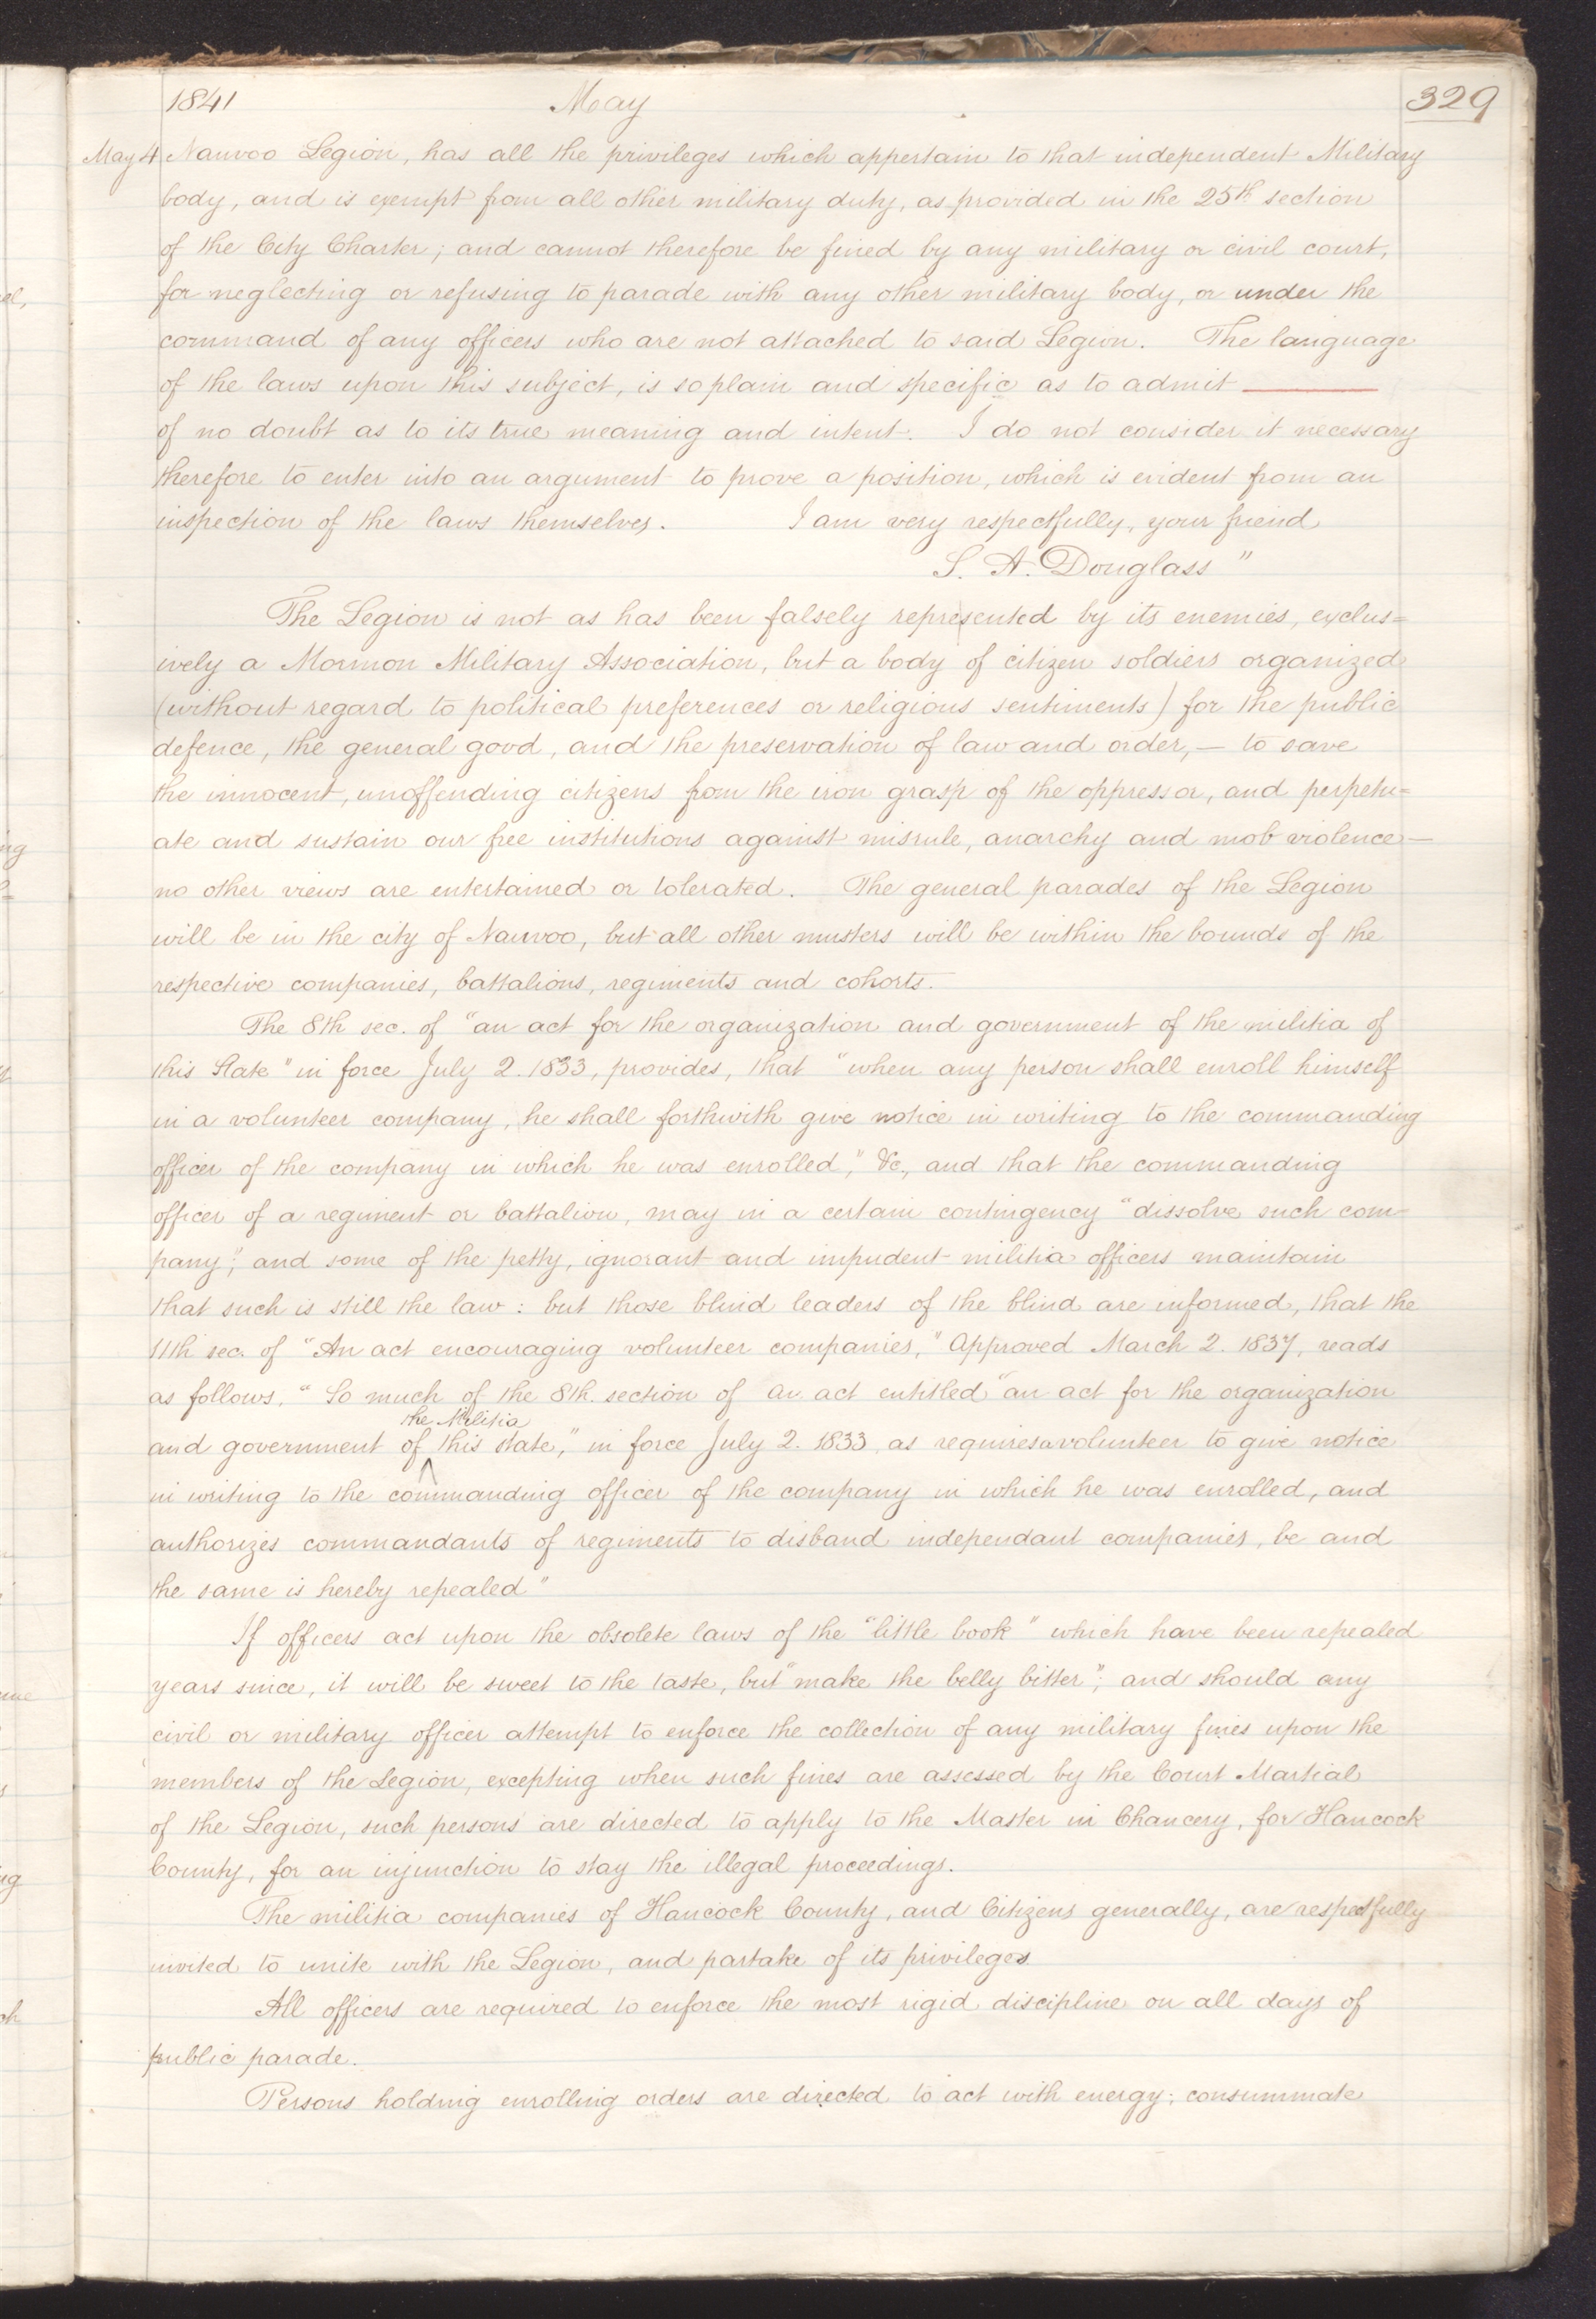 1841 May 329
May 4 Nauvoo Legion, has all the privileges which appertain to that independent Military
body, and is exempt from all other military duty, as provided in the 25th section
of the City Charter; and cannot therefore be fined by any military or civil court,
for neglecting or refusing to parade with any other military body, or under the
command of any officers who are not attached to said Legion. The language
of the laws upon this subject, is so plain and specific as to admit
of no doubt as to its true meaning and intent. I do not consider it necessary
therefore to enter into an argument to prove a position, which is evident from an
inspection of the laws themselves. I am very respectfully, your friend
S. A. Douglass"
The Legion is not as has been falsely represented by its enemies, exclus=
ively a Mormon Military Association, but a body of citizen soldiers organized
(without regard to political preferences or religious sentiments) for the public
defence, the general good, and the preservation of law and order,— to save
the innocent, unoffending citizens from the iron grasp of the oppressor, and perpetu=
ate and sustain our free institutions against misrule, anarchy and mob violence—
no other views are entertained or tolerated. The general parades of the Legion
will be in the city of Nauvoo, but all other musters will be within the bounds of the
respective companies, battalions, regiments and cohorts.
The 8th sec. of "an act for the organization and government of the militia of
this State" in force July 2. 1833, provides, that "when any person shall enroll himself
in a volunteer company, he shall forthwith give notice in writing to the commanding
officer of the company in which he was enrolled," &c., and that the commanding
officer of a regiment or battalion, may in a certain contingency "dissolve such com-
pany"; and some of the petty, ignorant and impudent militia officers maintain
that such is still the law: but those blind leaders of the blind are informed, that the
11th sec. of "An act encouraging volunteer companies," Approved March 2. 1837, reads
as follows. "So much of the 8th. section of an act entitled "an act for the organization
the Militia
and government of this state," in force July 2. 1833, as requires a volunteer to give notice
in writing to the commanding officer of the company in which he was enrolled, and
authorizes commandants of regiments to disband independant companies, be and
the same is hereby repealed"
If officers act upon the obsolete laws of the "little book" which have been repealed
years since, it will be sweet to the taste, but "make the belly bitter"; and should any
civil or military officer attempt to enforce the collection of any military fines upon the
members of the Legion, excepting when such fines are assessed by the Court Martial
of the Legion, such persons are directed to apply to the Master in Chancery, for Hancock
County, for an injunction to stay the illegal proceedings.
The militia companies of Hancock County, and Citizens generally, are respectfully
invited to unite with the Legion, and partake of its privileges
All officers are required to enforce the most rigid discipline on all days of
public parade.
Persons holding enrolling orders are directed to act with energy; consummate